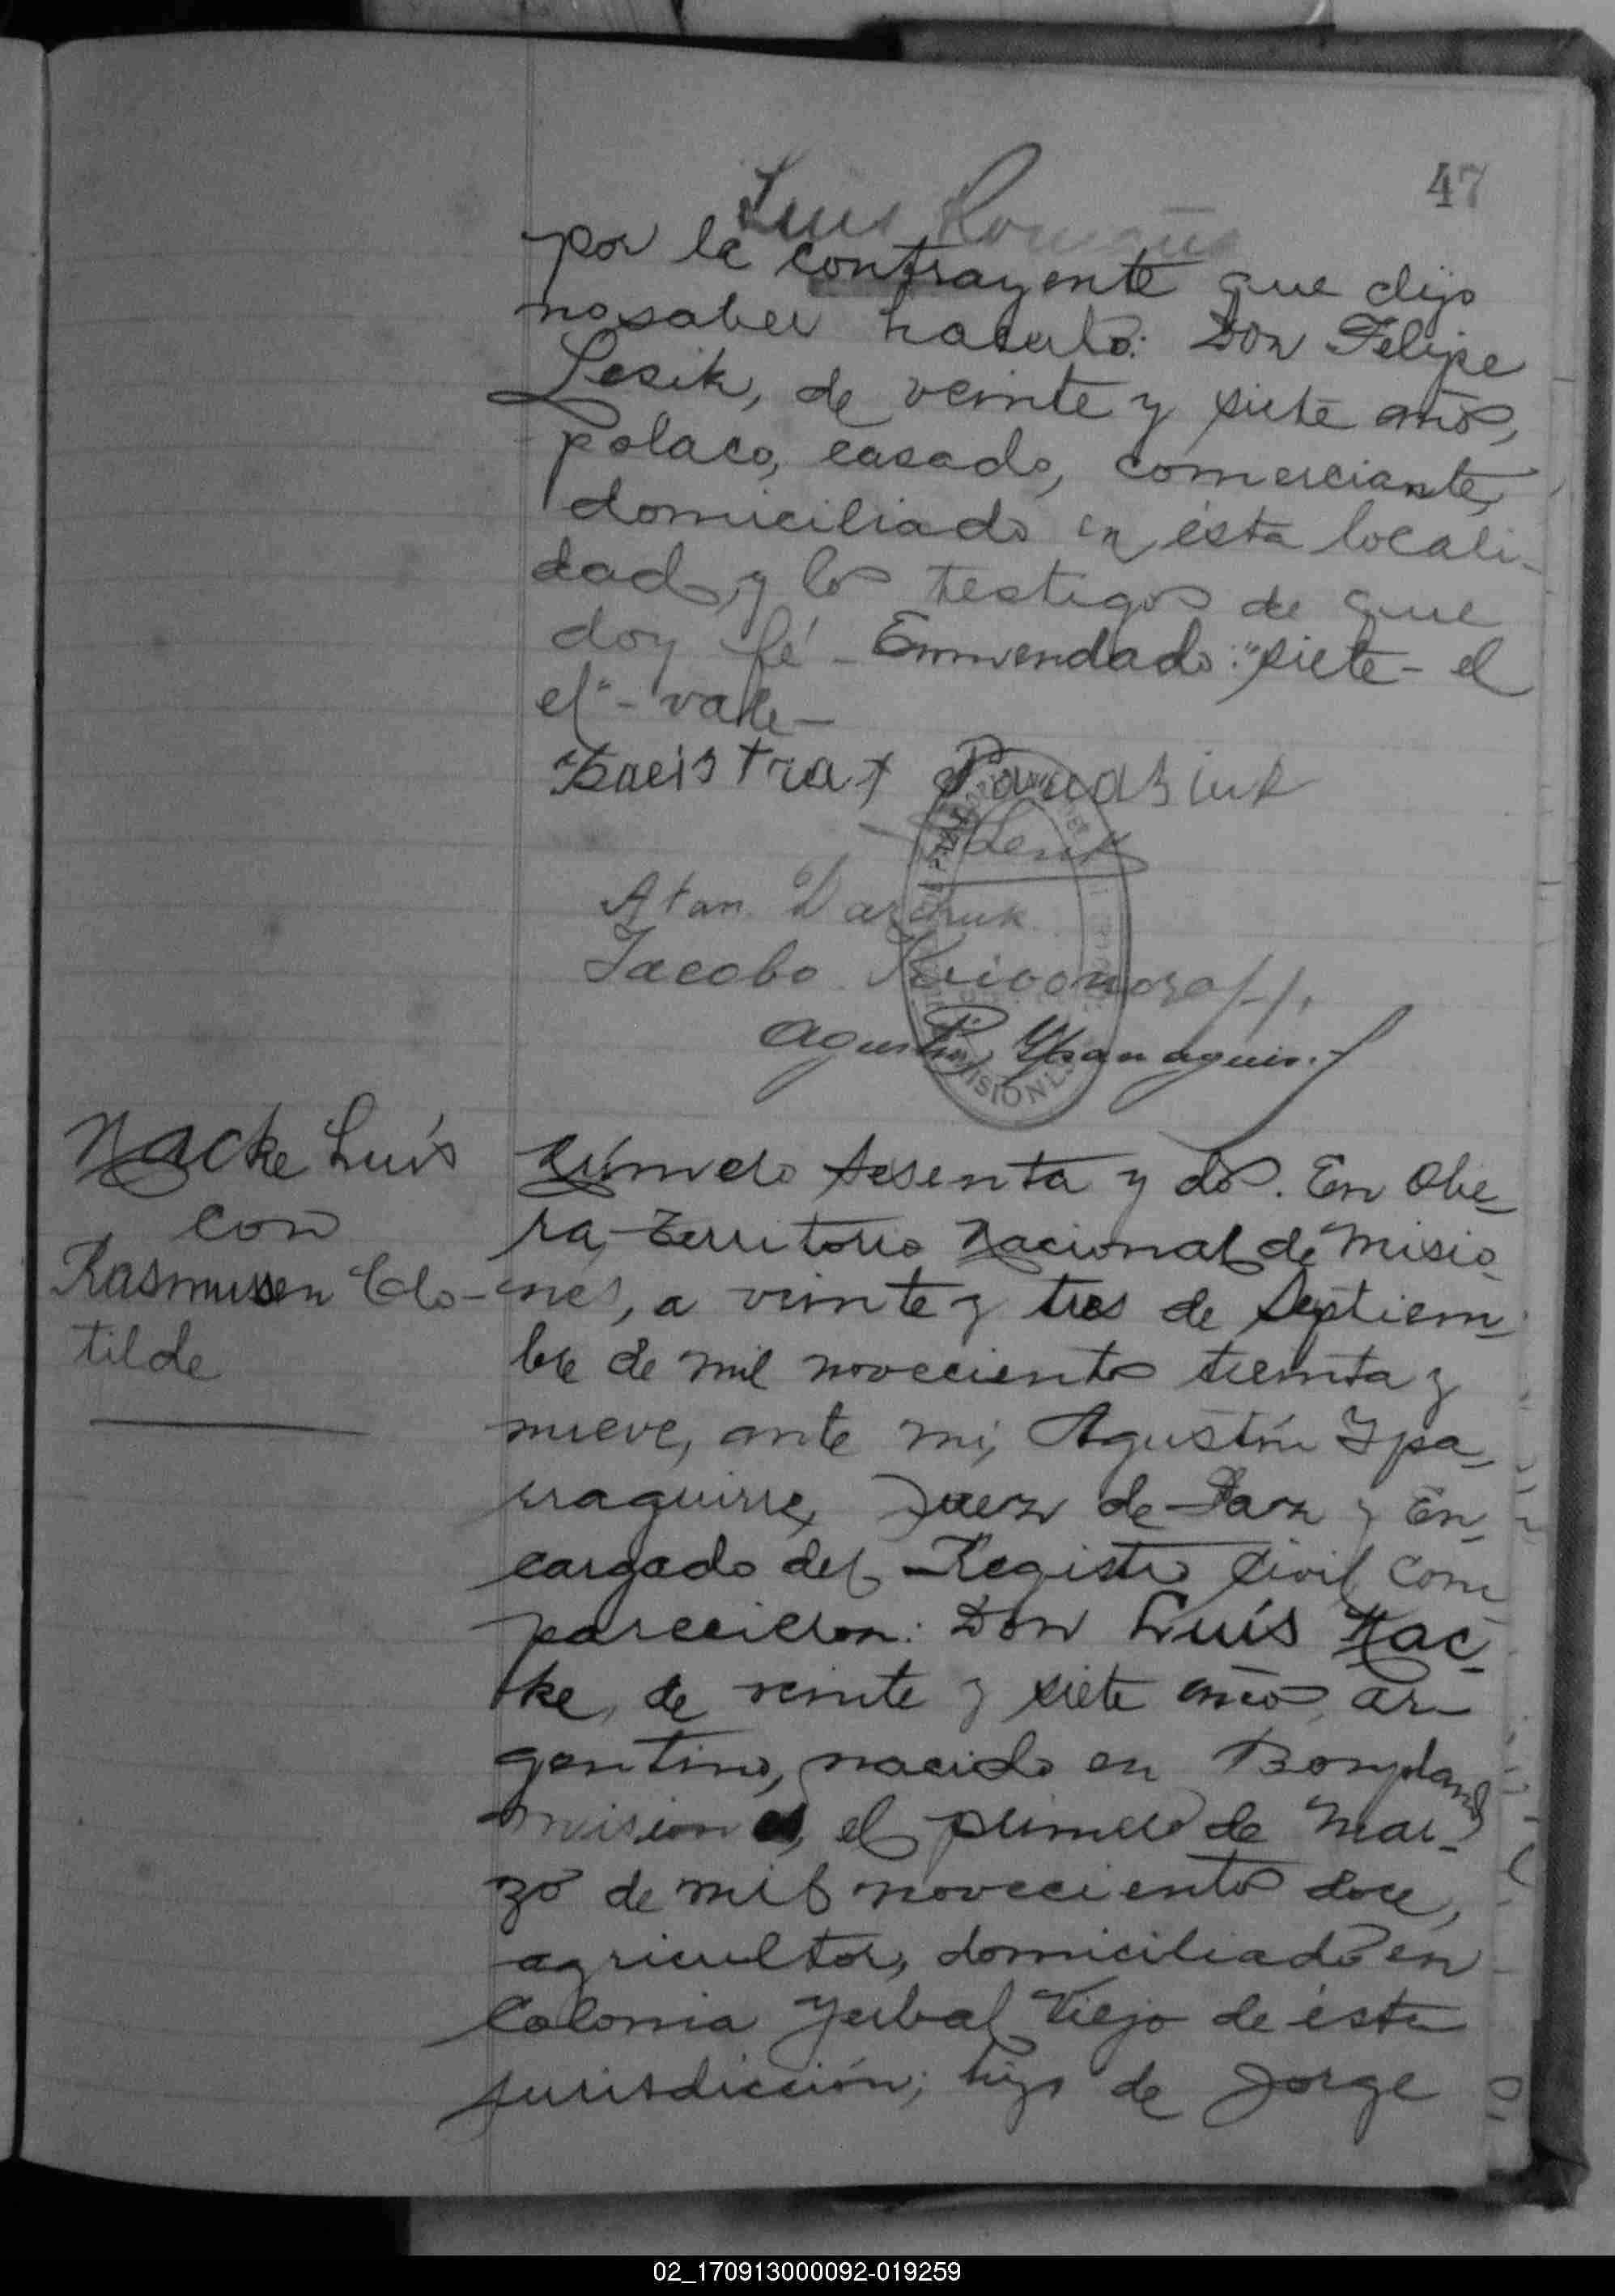 47
Luis
por la contrayente que dijo
no saber hacerlo: Don Felipe
Lesik, de veinte y siete años,
polaco, casado, comerciante,
domiciliado en ésta locali-
dad, y los testigos de que
doy fé - Enmendado: "siete - el
el" - vale -
Atan Darchuk
Jacobo
Agustín Yparraguirre
Nacke Luís
con
Rasmussen Clo-
tilde
Número sesenta y dos. En Obe-
ra, Territorio Nacional de Misio-
nes, a veinte y tres de Septiem-
bre de mil novecientos treinta y
nueve, ante mi, Agustín Ypa-
rraguirre, Juez de Paz y En-
cargado del Registro Civil com-
parecieron: Don Luís Nac-
ke, de veinte y siete años, ar-
gentino, nacido en Bonpland
Misiones, el primero de Mar-
zo de mil novecientos doce,
agricultor, domiciliado en
Colonia Yerbal Viejo de ésta
jurisdicción; hijo de Jorge
02_170913000092-019259